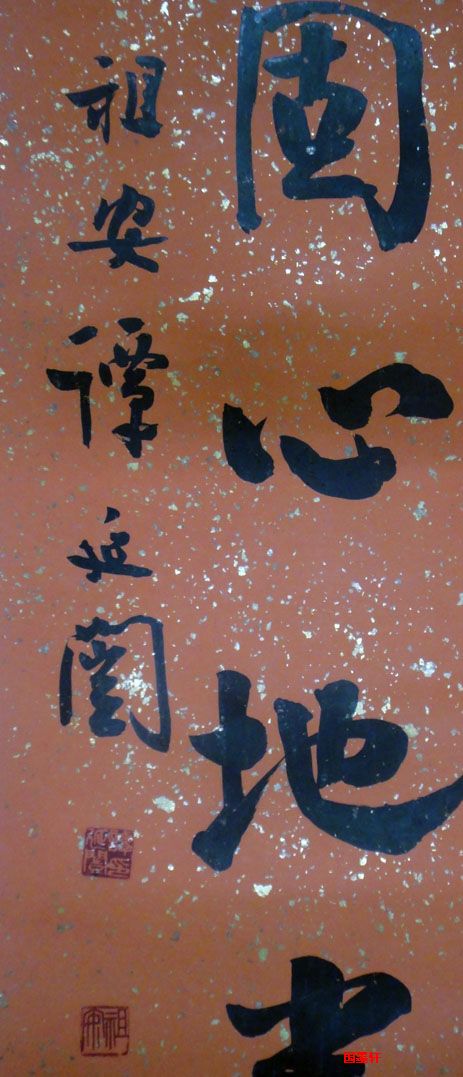 固心地
祖安譚延闓
祖安
国墨轩